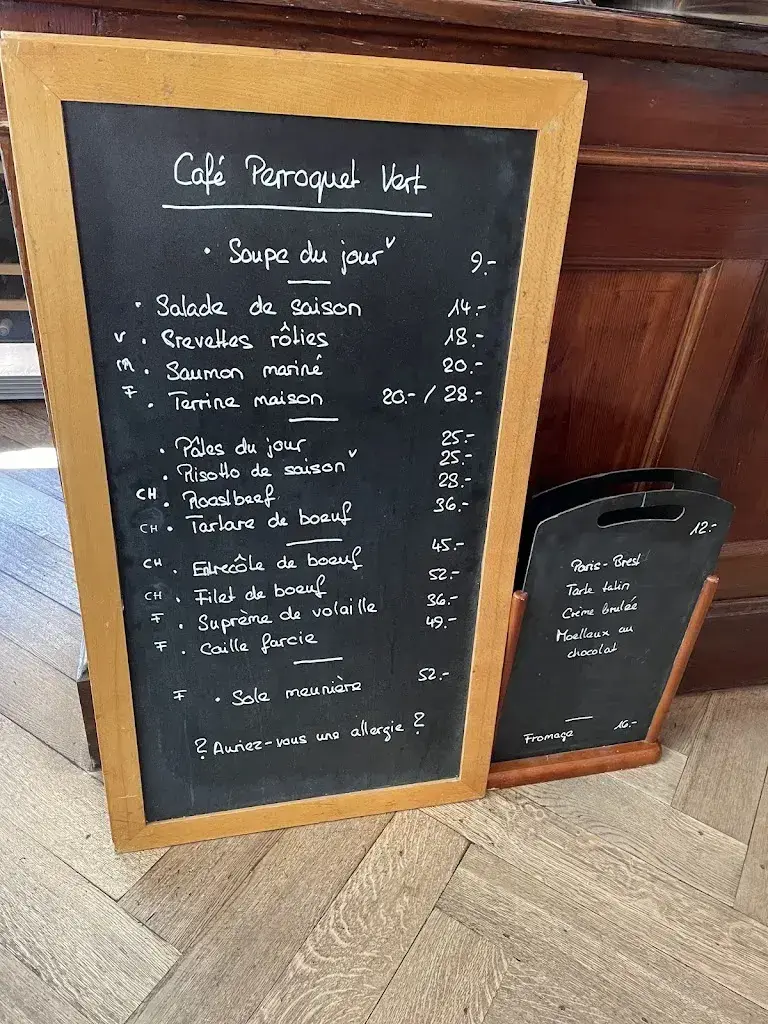 Café Perroquet Vert
• Soupe du jour v 9.-
• Salade de saison 14.-
v • Crevettes rôties 18.-
• Saumon mariné 20.-
F • Terrine maison 20.- / 28.-
• Pâtes du jour 25.-
• Risotto de saison v 25.-
CH • Roastbeef 28.-
CH • Tartare de boeuf 36.-
CH • Entrecôte de boeuf 45.-
CH • Filet de boeuf 52.-
F • Suprème de volaille 36.-
F • Caille farcie 49.-
F • Sole meunière 52.-
? Auriez-vous une allergie ?
12.-
Paris-Brest
Tarte tatin
Crème brulée
Moelleux au
chocolat
Fromage 16.-